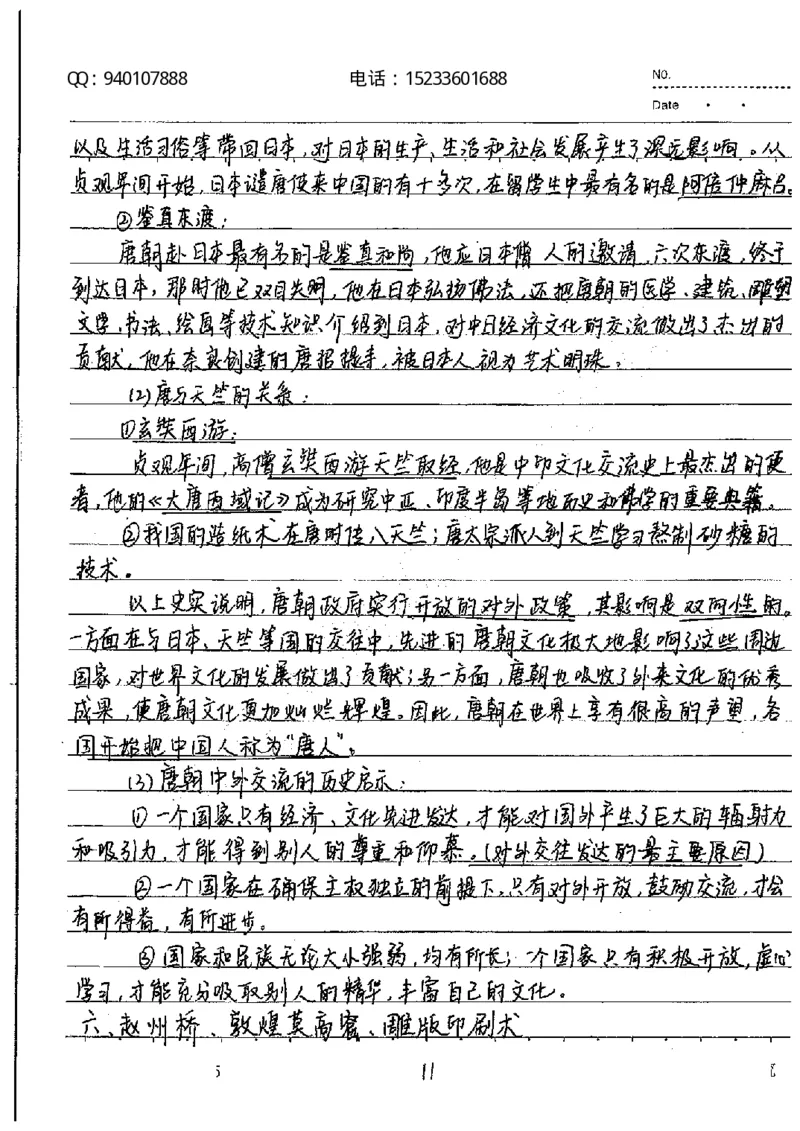 QQ：940107888 电话：15233601688 NO.
Date
以及生活习俗等带回日本，对日本的生产、生活和社会发展产生了深远影响。从
贞观年间开始，日本遣唐使来中国的有十多次，在留学生中最有名的是阿倍仲麻吕。
②鉴真东渡：
唐朝赴日本最有名的是鉴真和尚，他应日本僧人的邀请，六次东渡，终于
到达日本，那时他已双目失明，他在日本弘扬佛法，还把唐朝的医学、建筑、雕塑
文学、书法、绘画等技术知识介绍到日本，对中日经济文化的交流做出了杰出的
贡献，他在奈良创建的唐招提寺，被日本人视为艺术明珠。
(2)唐与天竺的关系：
①玄奘西游：
贞观年间，高僧玄奘西游天竺取经，他是中印文化交流史上最杰出的使
者，他的《大唐西域记》成为研究中亚、印度半岛等地历史和佛学的重要典籍。
②我国的造纸术在唐时传入天竺；唐太宗派人到天竺学习熬制砂糖的
技术。
以上史实说明，唐朝政府实行开放的对外政策，其影响是双向性的。
一方面在与日本、天竺等国的交往中，先进的唐朝文化极大地影响了这些周边
国家，对世界文化的发展做出了贡献；另一方面，唐朝也吸收了外来文化的优秀
成果，使唐朝文化更加灿烂辉煌。因此，唐朝在世界上享有很高的声望，各
国开始把中国人称为“唐人”。
(3)唐朝中外交流的历史启示：
①一个国家只有经济、文化先进发达，才能对国外产生了巨大的辐射力
和吸引力，才能得到别人的尊重和仰慕。(对外交往发达的最主要原因)
②一个国家在确保主权独立的前提下，只有对外开放，鼓励交流，才会
有所得益，有所进步。
③国家和民族无论大小强弱，均有所长；一个国家只有积极开放，虚心
学习，才能充分吸取别人的精华，丰富自己的文化。
六、赵州桥、敦煌莫高窟、雕版印刷术
11